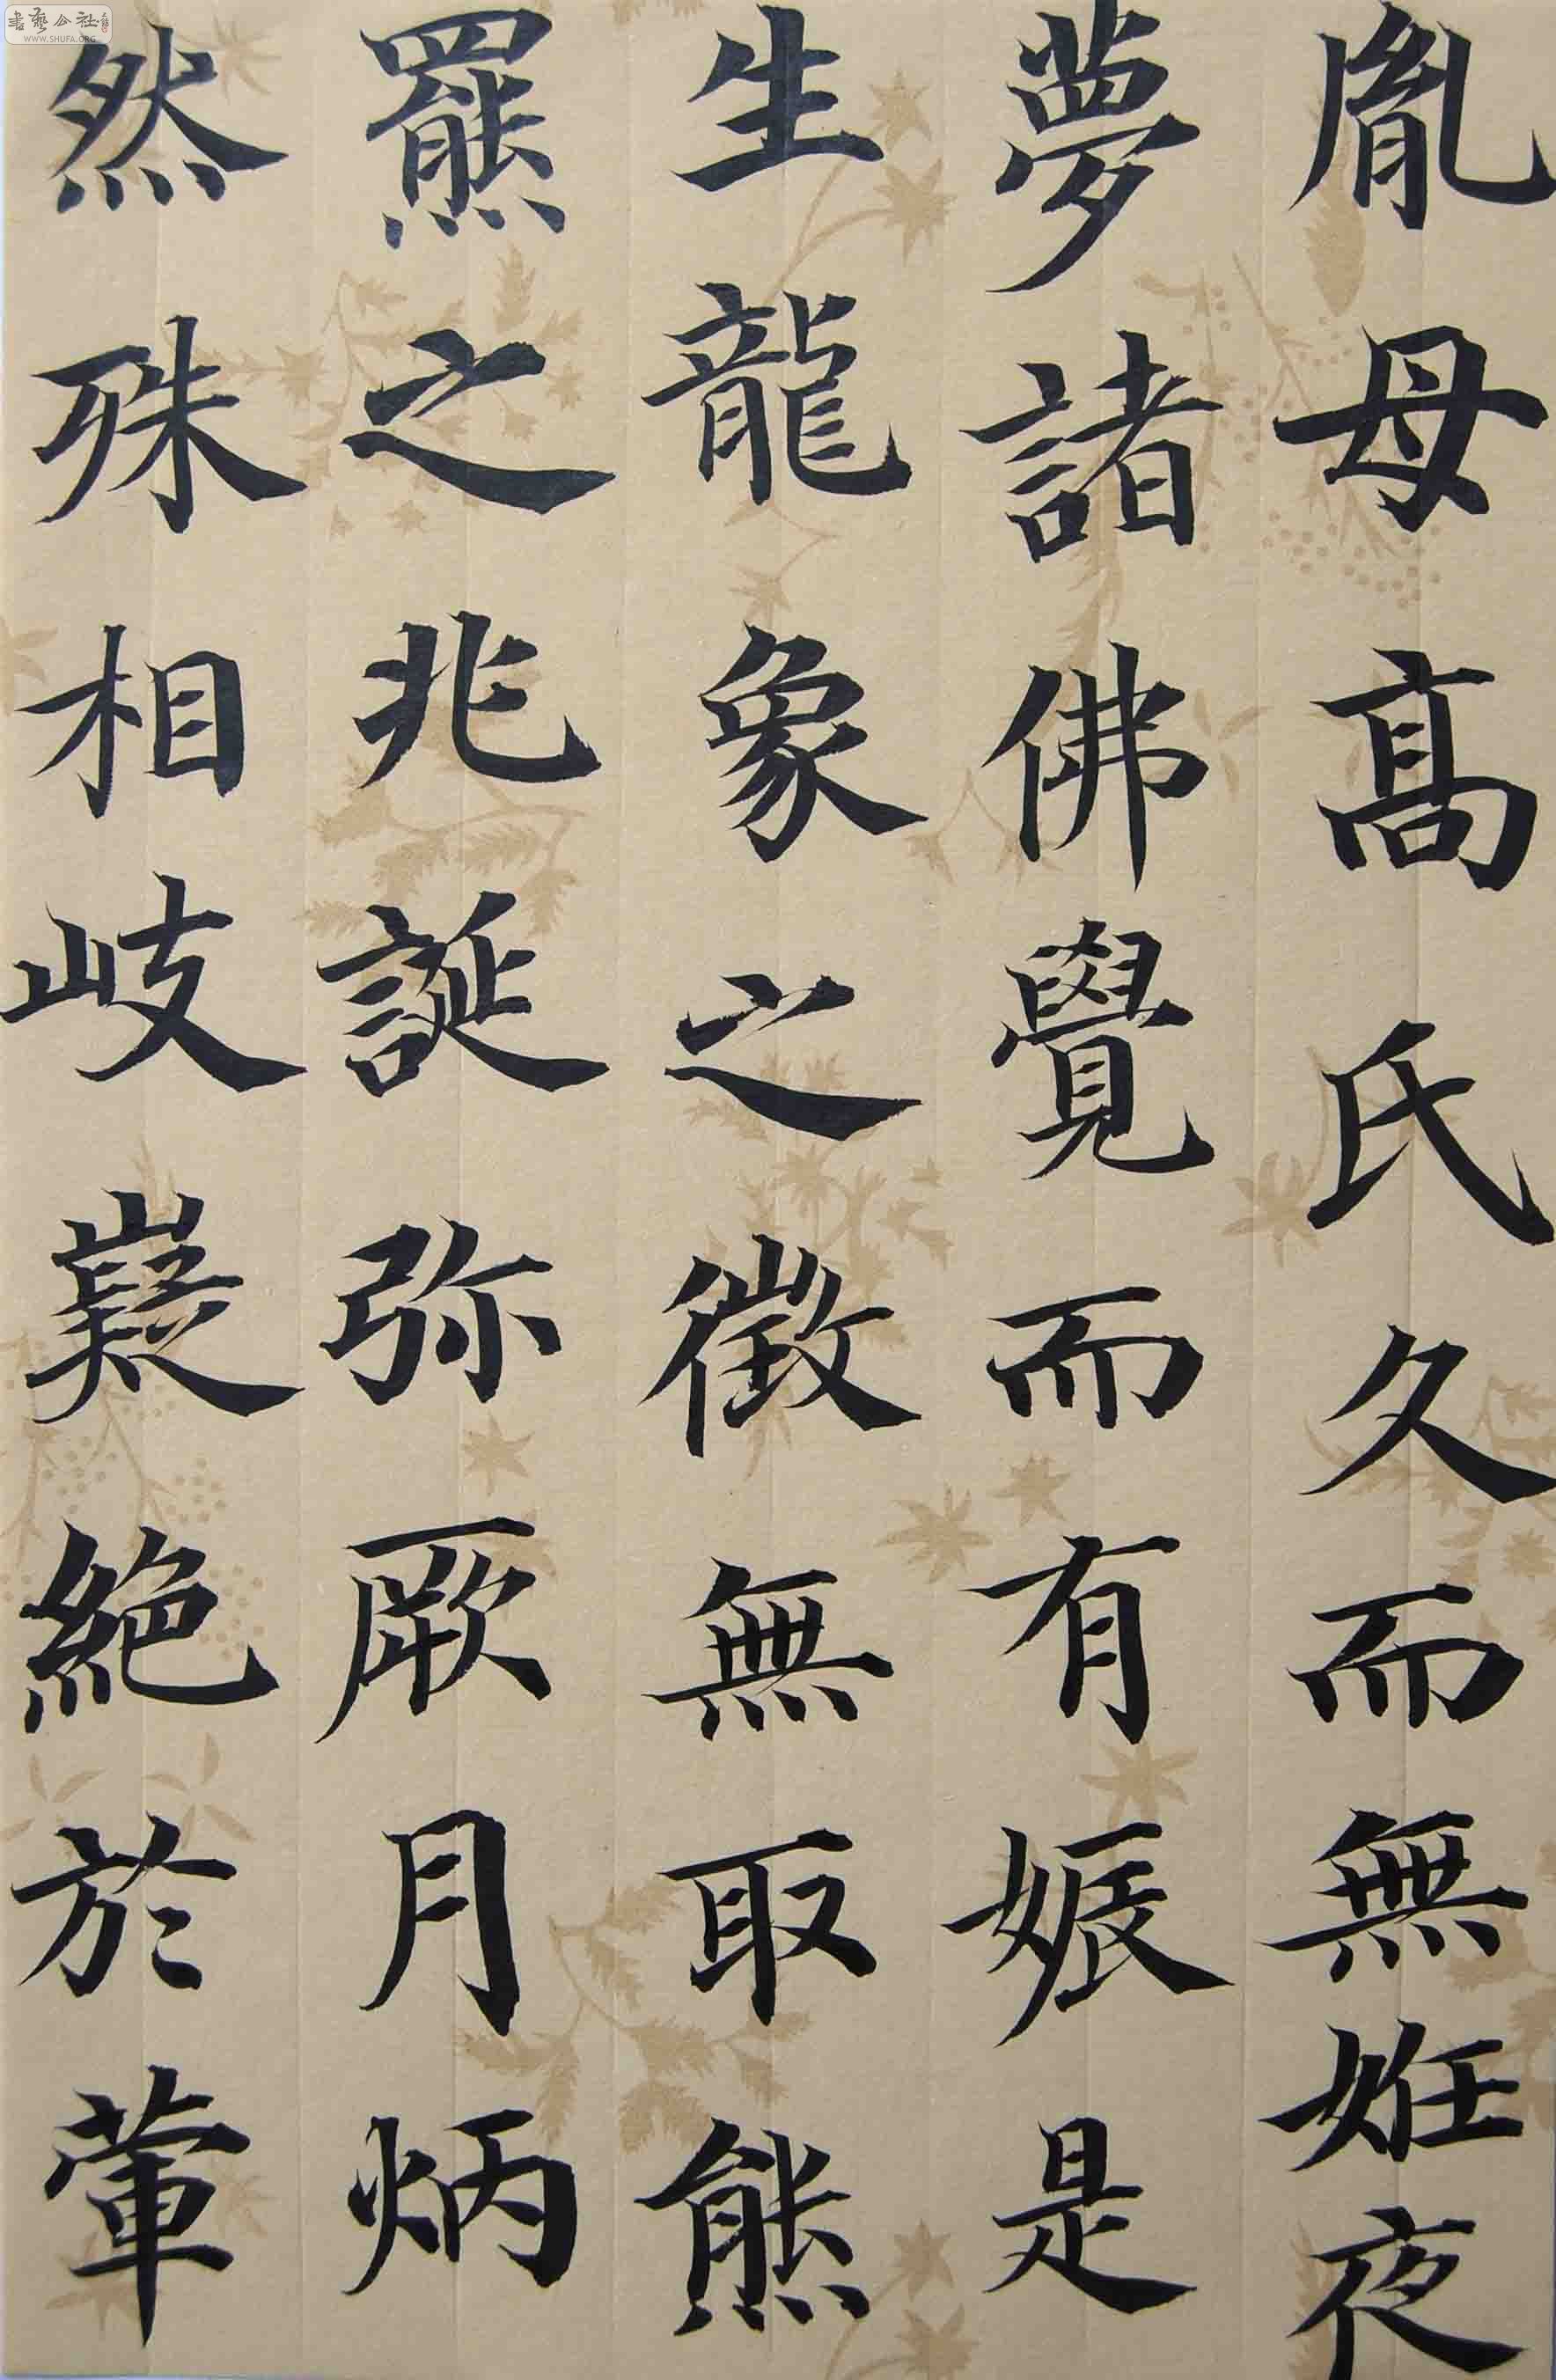 胤母高氏久而無妊夜
夢諸佛覺而有娠是
生龍象之徵無取熊
羆之兆誕弥厥月炳
然殊相岐嶷絕於葷
書藝公社
WWW.SHUFA.ORG